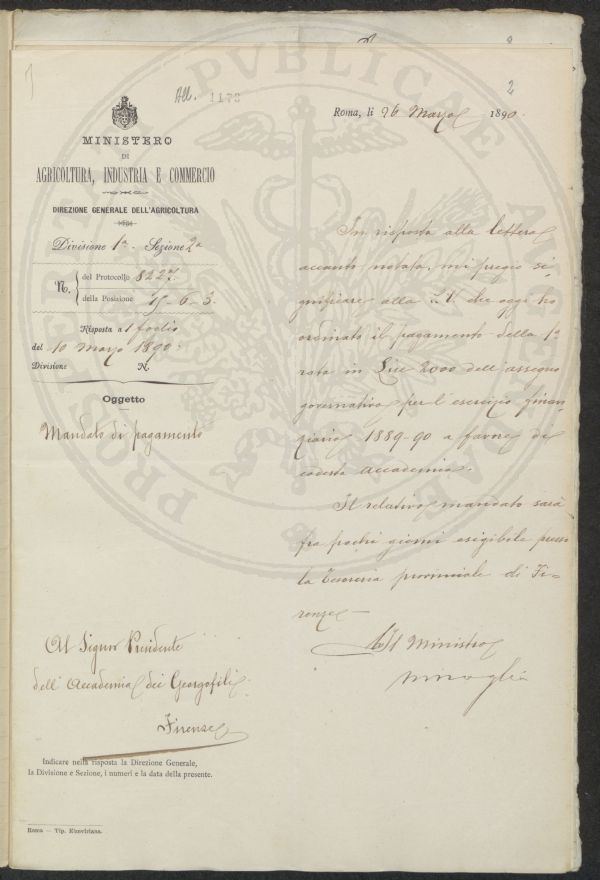 2
All. 1173
MINISTERO
DI
AGRICOLTURA, INDUSTRIA E COMMERCIO
DIREZIONE GENERALE DELL'AGRICOLTURA
Divisione 1ª - Sezione 2ª
N. del Protocollo 8227.
della Posizione 15-6-3.
Risposta a 1 foglio
del 10 Marzo 1890.
Divisione N.
Oggetto
Mandato di pagamento
Roma, li 26 Marzo 1890.
In risposta alla lettera
accanto notata, mi pregio si-
gnificare alla S.V. che oggi ho
ordinato il pagamento della 1ª
rata in Lire 2000 dell'assegno
governativo per l'esercizio finan-
ziario 1889-90 a favore di
codesta accademia.
Il relativo mandato sarà
fra pochi giorni esigibile presso
la Tesoreria provinciale di Fi-
renze
Il Ministro
Al Signor Presidente
dell'Accademia dei Georgofili
Firenze
Indicare nella risposta la Direzione Generale,
la Divisione e Sezione, i numeri e la data della presente.
Roma — Tip. Elzeviriana.
PROSPERITATI PVBLICAE AVGENDAE